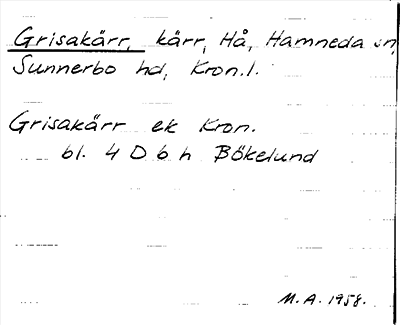 Grisakärr, kärr, Hå, Hamneda sn,
Sunnerbo hd, Kron.l.
Grisakärr ek Kron.
bl. 4 D 6 h Bökelund
M.A. 1958.